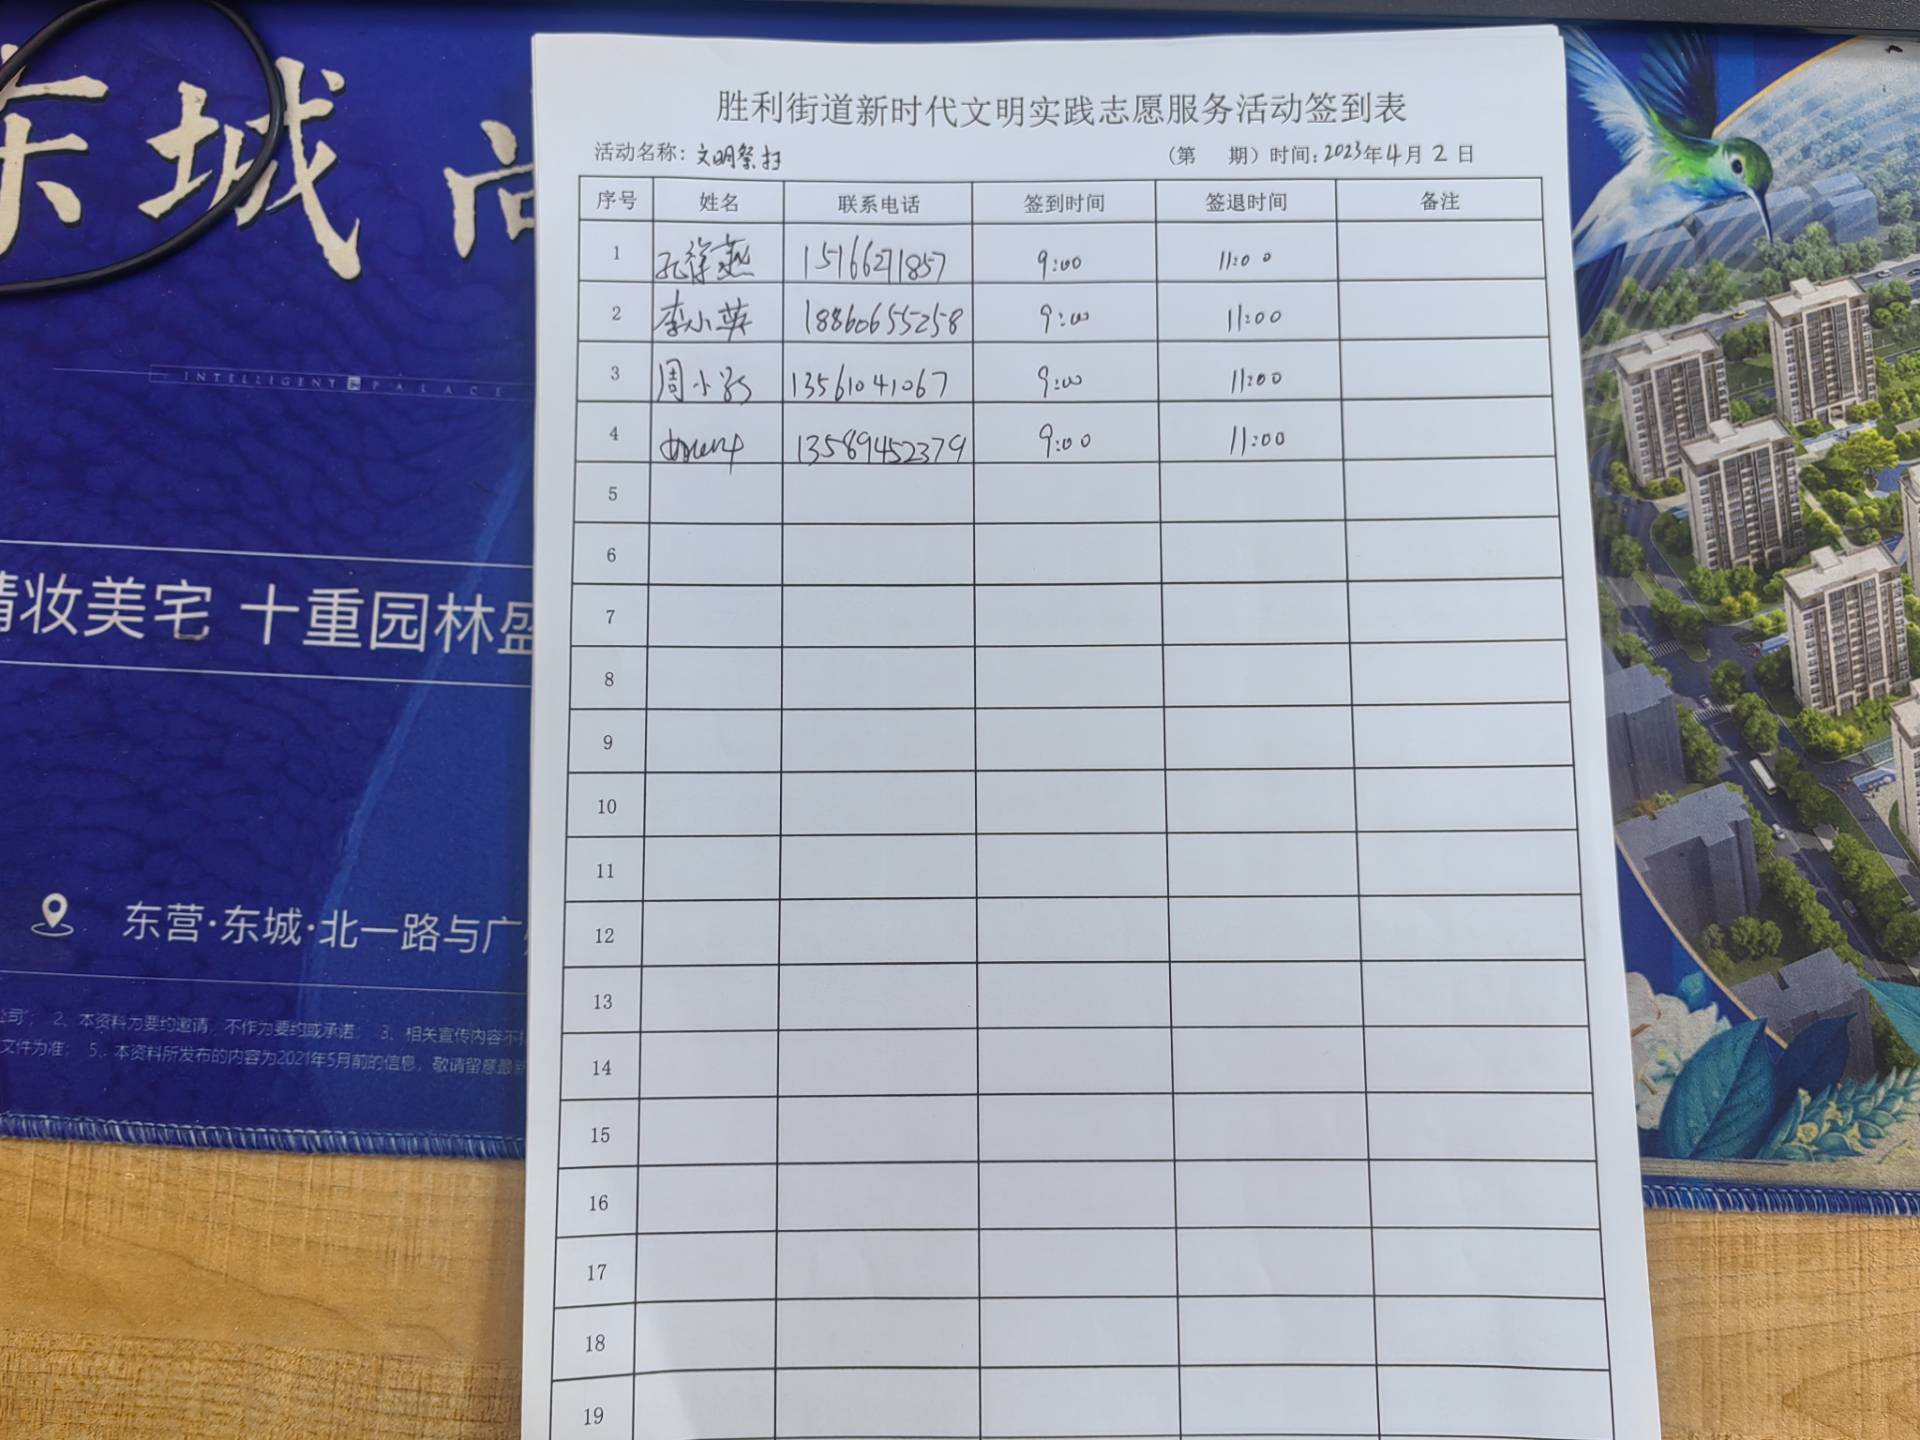 东城
INTELLIGENT PALACE
精妆美宅 十重园林盛
东营·东城·北一路与广
公司; 2、本资料为要约邀请,不作为要约或承诺; 3、相关宣传内容不
文件为准; 5、本资料所发布的内容为2021年5月前的信息,敬请留意最新
胜利街道新时代文明实践志愿服务活动签到表
活动名称:文明祭扫 (第 期)时间:2023年4月2日
序号 姓名 联系电话 签到时间 签退时间 备注
1 15166271857 9:00 11:00
2 李小英 18860655258 9:00 11:00
3 周小 13561041067 9:00 11:00
4 13589452379 9:00 11:00
5
6
7
8
9
10
11
12
13
14
15
16
17
18
19